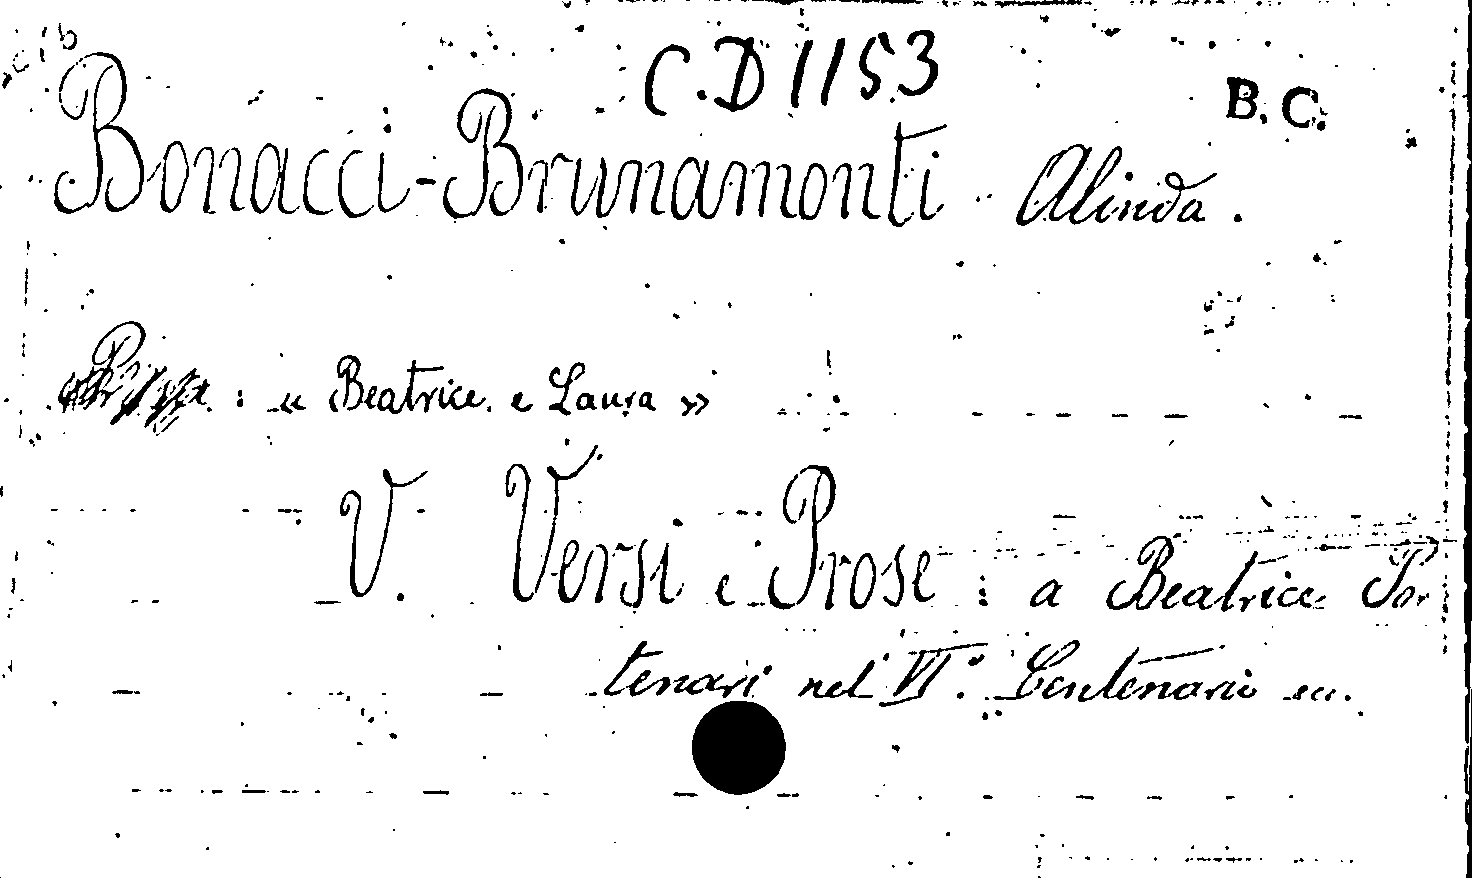 C.D 1153
B. C.
Bonacci-Brunamonti Alinda.
: « Beatrice e Laura »
V. Versi e Prose : a Beatrice Por
tenari nel VI.° Centenario